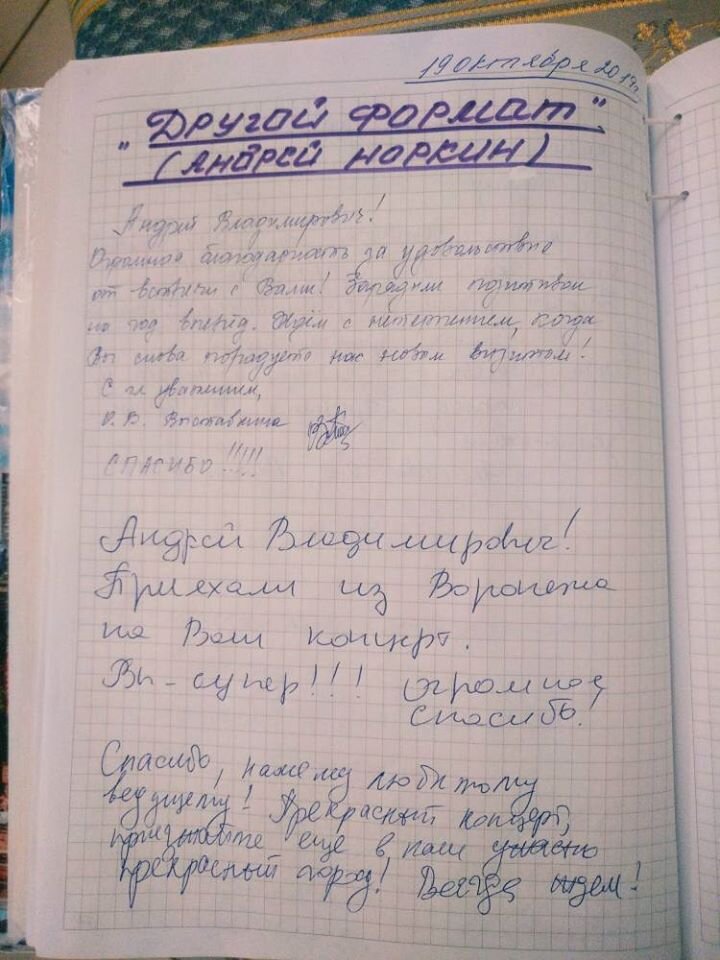 19 октября 2019г.
"Другой формат".
(Андрей Норкин)
Андрей Владимирович!
Огромная благодарность за удовольствие
от встречи с Вами! Зарядили позитивом
на год вперёд. Ждём с нетерпением, когда
Вы снова порадуете нас новым визитом!
С уважением,
О.В. Выставкина
СПАСИБО!!!!!
Андрей Владимирович!
Приехали из Воронежа
на Ваш концерт.
Вы - супер!!! Огромное
спасибо!
Спасибо, нашему любимому
ведущему! Прекрасный концерт,
приезжайте еще в наш
прекрасный город! Всегда ждем!